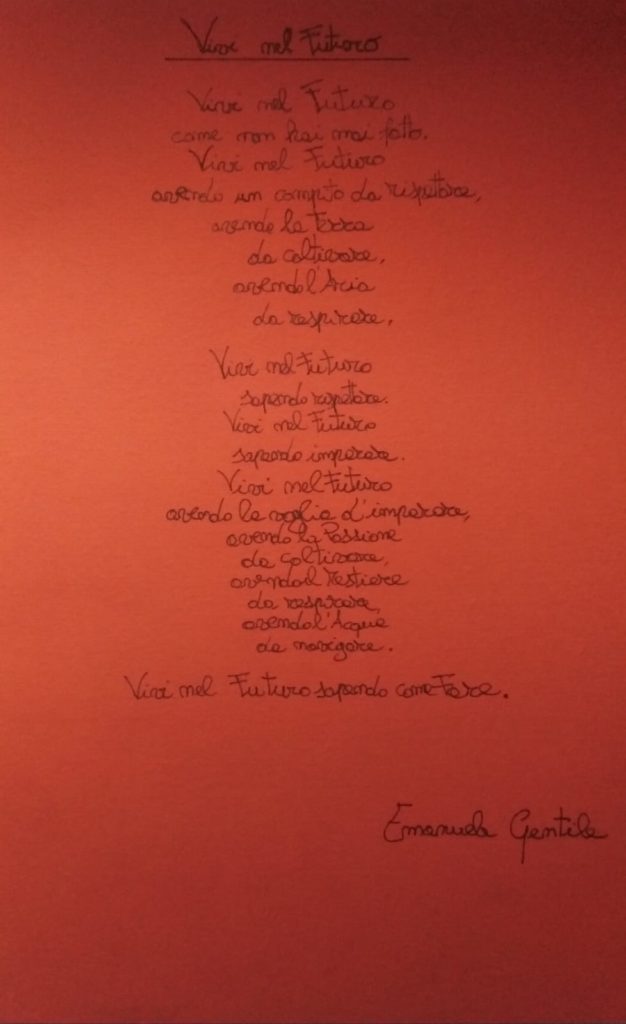 Vivi nel Futuro
Vivi nel Futuro
come non hai mai fatto.
Vivi nel Futuro
avendo un compito da rispettare,
avendo la Terra
da coltivare,
avendo l'Aria
da respirare.
Vivi nel Futuro
sapendo rispettare.
Vivi nel Futuro
sapendo imparare.
Vivi nel Futuro
avendo la voglia d'imparare,
avendo la Passione
da coltivare,
avendo il Mestiere
da respirare,
avendo l'Acqua
da navigare.
Vivi nel Futuro sapendo come Fare.
Emanuela Gentile